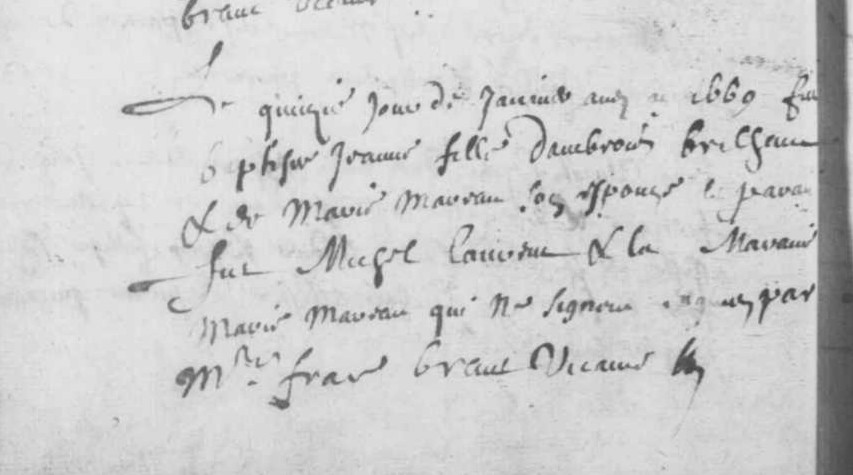 brant vicaire
Le quizie jour de Janvier 1669 fut
baptisee Jeanne fille dambrois brilhaut
& de Marie Mareau son espouse le parain
fut Michel Laurent & la Maraine
Marie Mareau qui ne signent par
Mre frare brant Vicaire